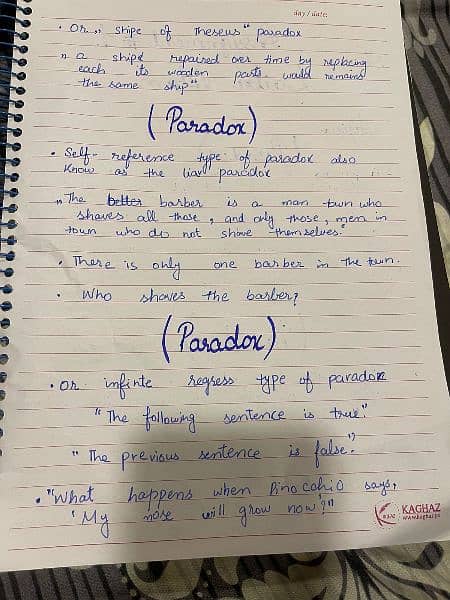 day / date:
• Or „ shipe of Theseus" paradox
„ a shipd repaired over time by replacing
each its wooden parts would remains
the same ship"
(Paradox)
• Self-reference type of paradox also
know as the liar paradox
„The better barber is a man town who
shaves all those, and only those, men in
town who do not shave themselves."
• There is only one barber in the town.
• Who shaves the barber?
(Paradox)
• Or infinte regress type of paradox
"The following sentence is true."
"The previous sentence is false."
• "What happens when Pinocohio says,
'My nose will grow now'?"
KAGHAZ
www.kaghaz.pk